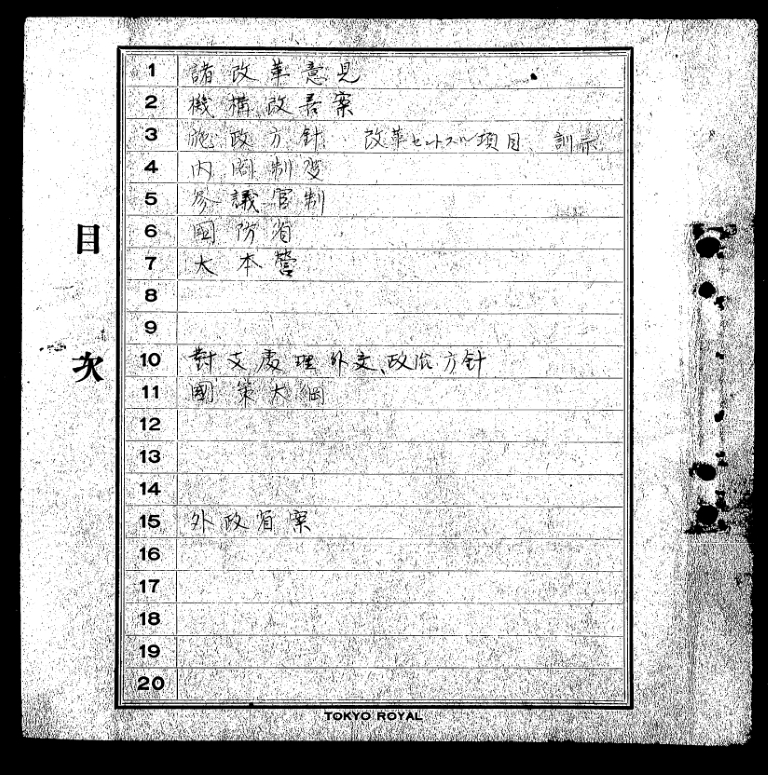 目次
1 諸改革意見
2 機構改善案
3 施政方針 改革セントスル項目 訓示
4 内閣制度
5 参議官制
6 國防省
7 大本營
8
9
10 對支處理外交、政治方針
11 國策大綱
12
13
14
15 外政省案
16
17
18
19
20
TOKYO ROYAL